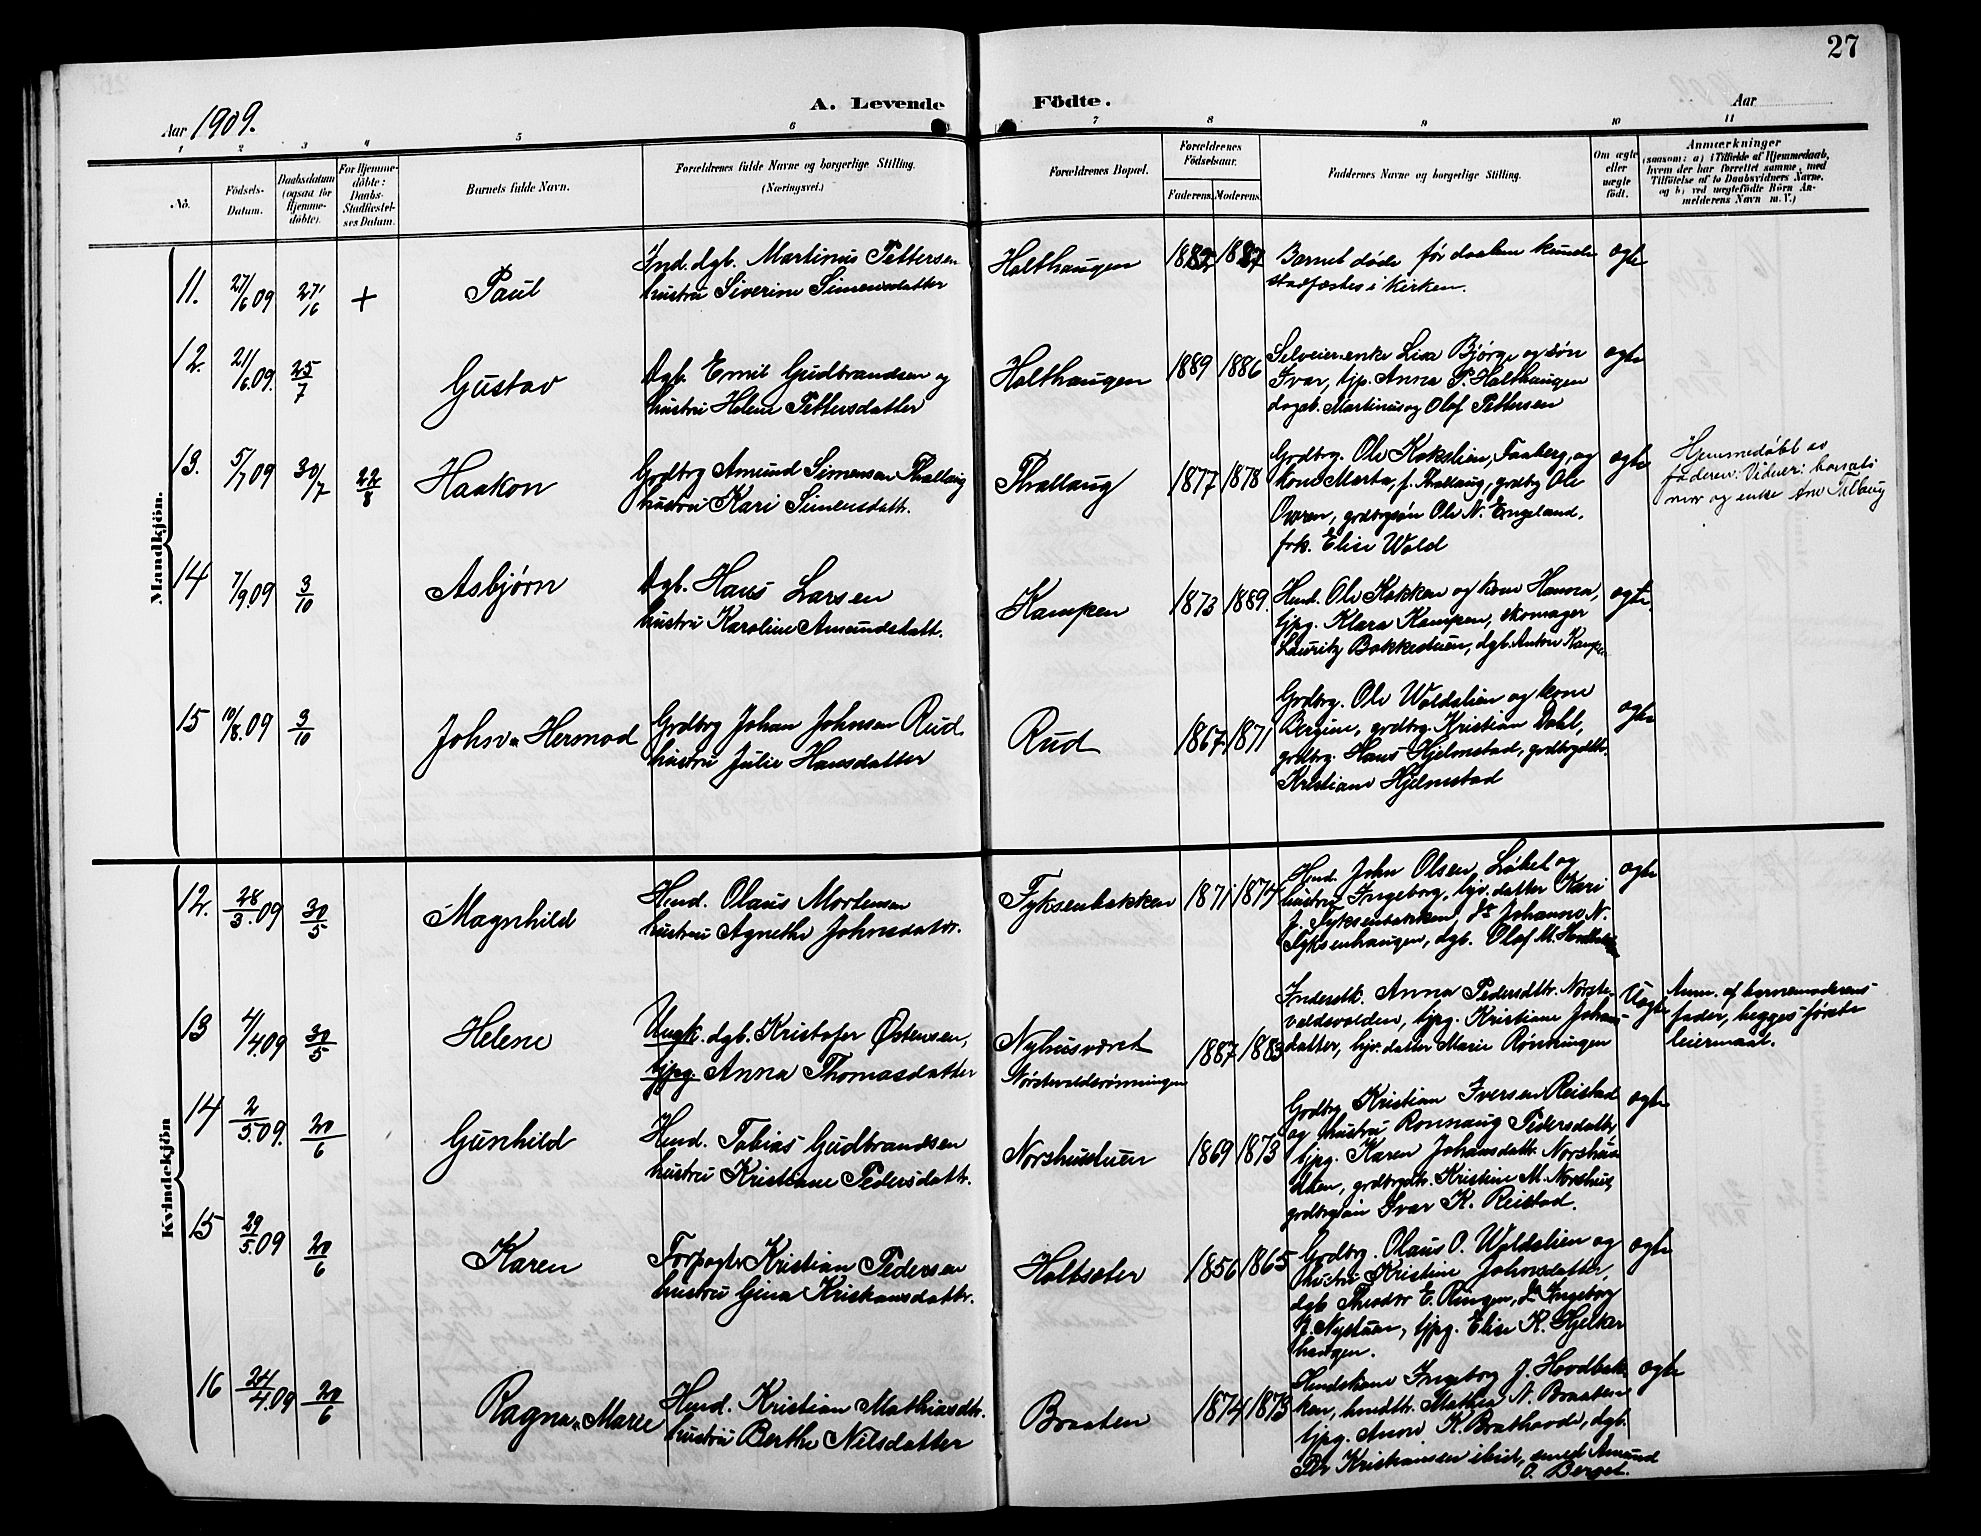 27
A. Levende Födte.
Aar 1909.
Aar
1 2 3 4 5 6 7 8 9 10 11
No.
Födsels-Datum.
Daabsdatum (ogsaa for Hjemme-döbte).
For Hjemme-döbte: Daabs-Stadfæstel-ses Datum.
Barnets fulde Navn.
Forældrenes fulde Navne og borgerlige Stilling.
(Næringsvei.)
Forældrenes Bopæl.
Forældrenes Födselsaar.
Faderens. Moderens.
Faddernes Navne og borgerlige Stilling.
Om ægte eller uægte født.
Anmærkninger
(saasom: a) i Tilfælde af Hjemmedaab,
hvem der har forrettet samme, med
Tilföielse af to Daabsvidners Navne,
og b) ved uægtefödte Börn An-
melderens Navn m. V.)
Mandkjön.
11. 27/6 09 27/6 + Paul
Ind. dgb. Martinus Pettersen
hustru Siverine Simensdatter
Holthaugen 1882 1887
Barnet døde før daaben kunde
stadfæstes i kirken.
ægte
12. 21/6 09. 25/7 Gustav
Dgb. Emil Gudbrandsen og
hustru Helene Pettersdatter
Holthaugen 1889 1886
Selveierenke Lisa Bjørge og søn
Ivar, tjp. Anna P. Holthaugen
dagsb. Martinus og Olaf Pettersen
ægte
13. 5/7 09 30/7 22/8 Haakon
Grdbrg Amund Simensen Thallaug
hustru Kari Simensdatt.
Thallaug 1877 1878
Grdbrg. Ole Kokslien, Faaberg, og
kone Marta, f. Thallaug, grdbrg Ole
Owren, grdbrgsøn Ole N. Engeland,
frk. Elise Wold
ægte
Hjemmedøbt av
faderen. Vidner:
mor og enke Ane
14 7/9 09 3/10 Asbjørn
Dgb. Hans Larsen
hustru Karoline Amundsdatt.
Kampen 1873 1889.
Husd. Ole Kokken og kone Hanna,
tjpg. Klara Kampen, skomager
Lauritz Bakkestuen, dgb. Anton Kampen
ægte
15 10/8 09 3/10 Johan Hermod
Grdbrg Johan Johnsen Rud,
hustru Julie Hansdatter
Rud 1867 1871
Grdbrg. Ole Woldslien og kone
Bergine, grdbrg. Kristian Dahl,
grdbrg. Hans Hjelmstad, grdbrgdtr.
Kristiane Hjelmstad
ægte
Kvindekjön
12. 28/3 09 30/5 Magnhild
Husd. Olaus Mortensen
hustru Agnethe Johnsdatr.
Fyksenbakken 1871 1874
Husd. John Olsen Løket og
hustru Ingeborg, hjv. datter Kari
J. Fyksenbakken, do Johanne N.
Fyksenhaugen, dgb. Olaf M.
ægte
13 4/4 09 30/5 Helene
Ungk. dgb. Kristofer Østensen,
tjpg. Anna Thomasdatter
Nyhusværet
Nørstevoldsrønningen 1887 1883
Inderstk. Anna Pedersdtr. Nørste-
voldsvolden, tjpg. Kristiane Johans-
datter, hjv. datter Marie Rønningen
Uægte
Anm. af barnemoderens
fader, begges første
leiermaal.
14 2/5 09. 20/6 Gunhild
Husd. Tobias Gudbrandsen
hustru Kristiane Pedersdatt.
Norshusstuen 1869 1873
Grdbrg Kristian Iversen Reistad
og hustru Rønnaug Pedersdatter,
tjpg. Karen Johansdatt. Norshus-
stuen, grdbrgdtr. Kristine M. Norshus,
grdbrgsøn Ivar K. Reistad.
ægte
15 29/5 09 20/6 Karen
Forpagter Kristian Pedersen
hustru Gina Kristiansdattr.
Holtsæter 1856 1865
Grdbrg. Olaus O. Woldslien og
hustru Kristine Johnsdatter,
dgb Theodor E. Ringen, do Ingeborg
N. Nystuen, tjpg. Elise K. Hjelker
haugen.
ægte
16 24/4 09 20/6 Ragna Marie
Husd. Kristian Mathiasdtr.
hustru Berthe Nilsdatter
Braaten 1874 1873
Husdskone Ingeborg J. Hovdbak-
ken, husdtr. Mathea N. Braaten
tjpg. Anne K. Brathovde, dgb.
Per Kristiansen ibid, smed Amund
O. Berget.
ægte